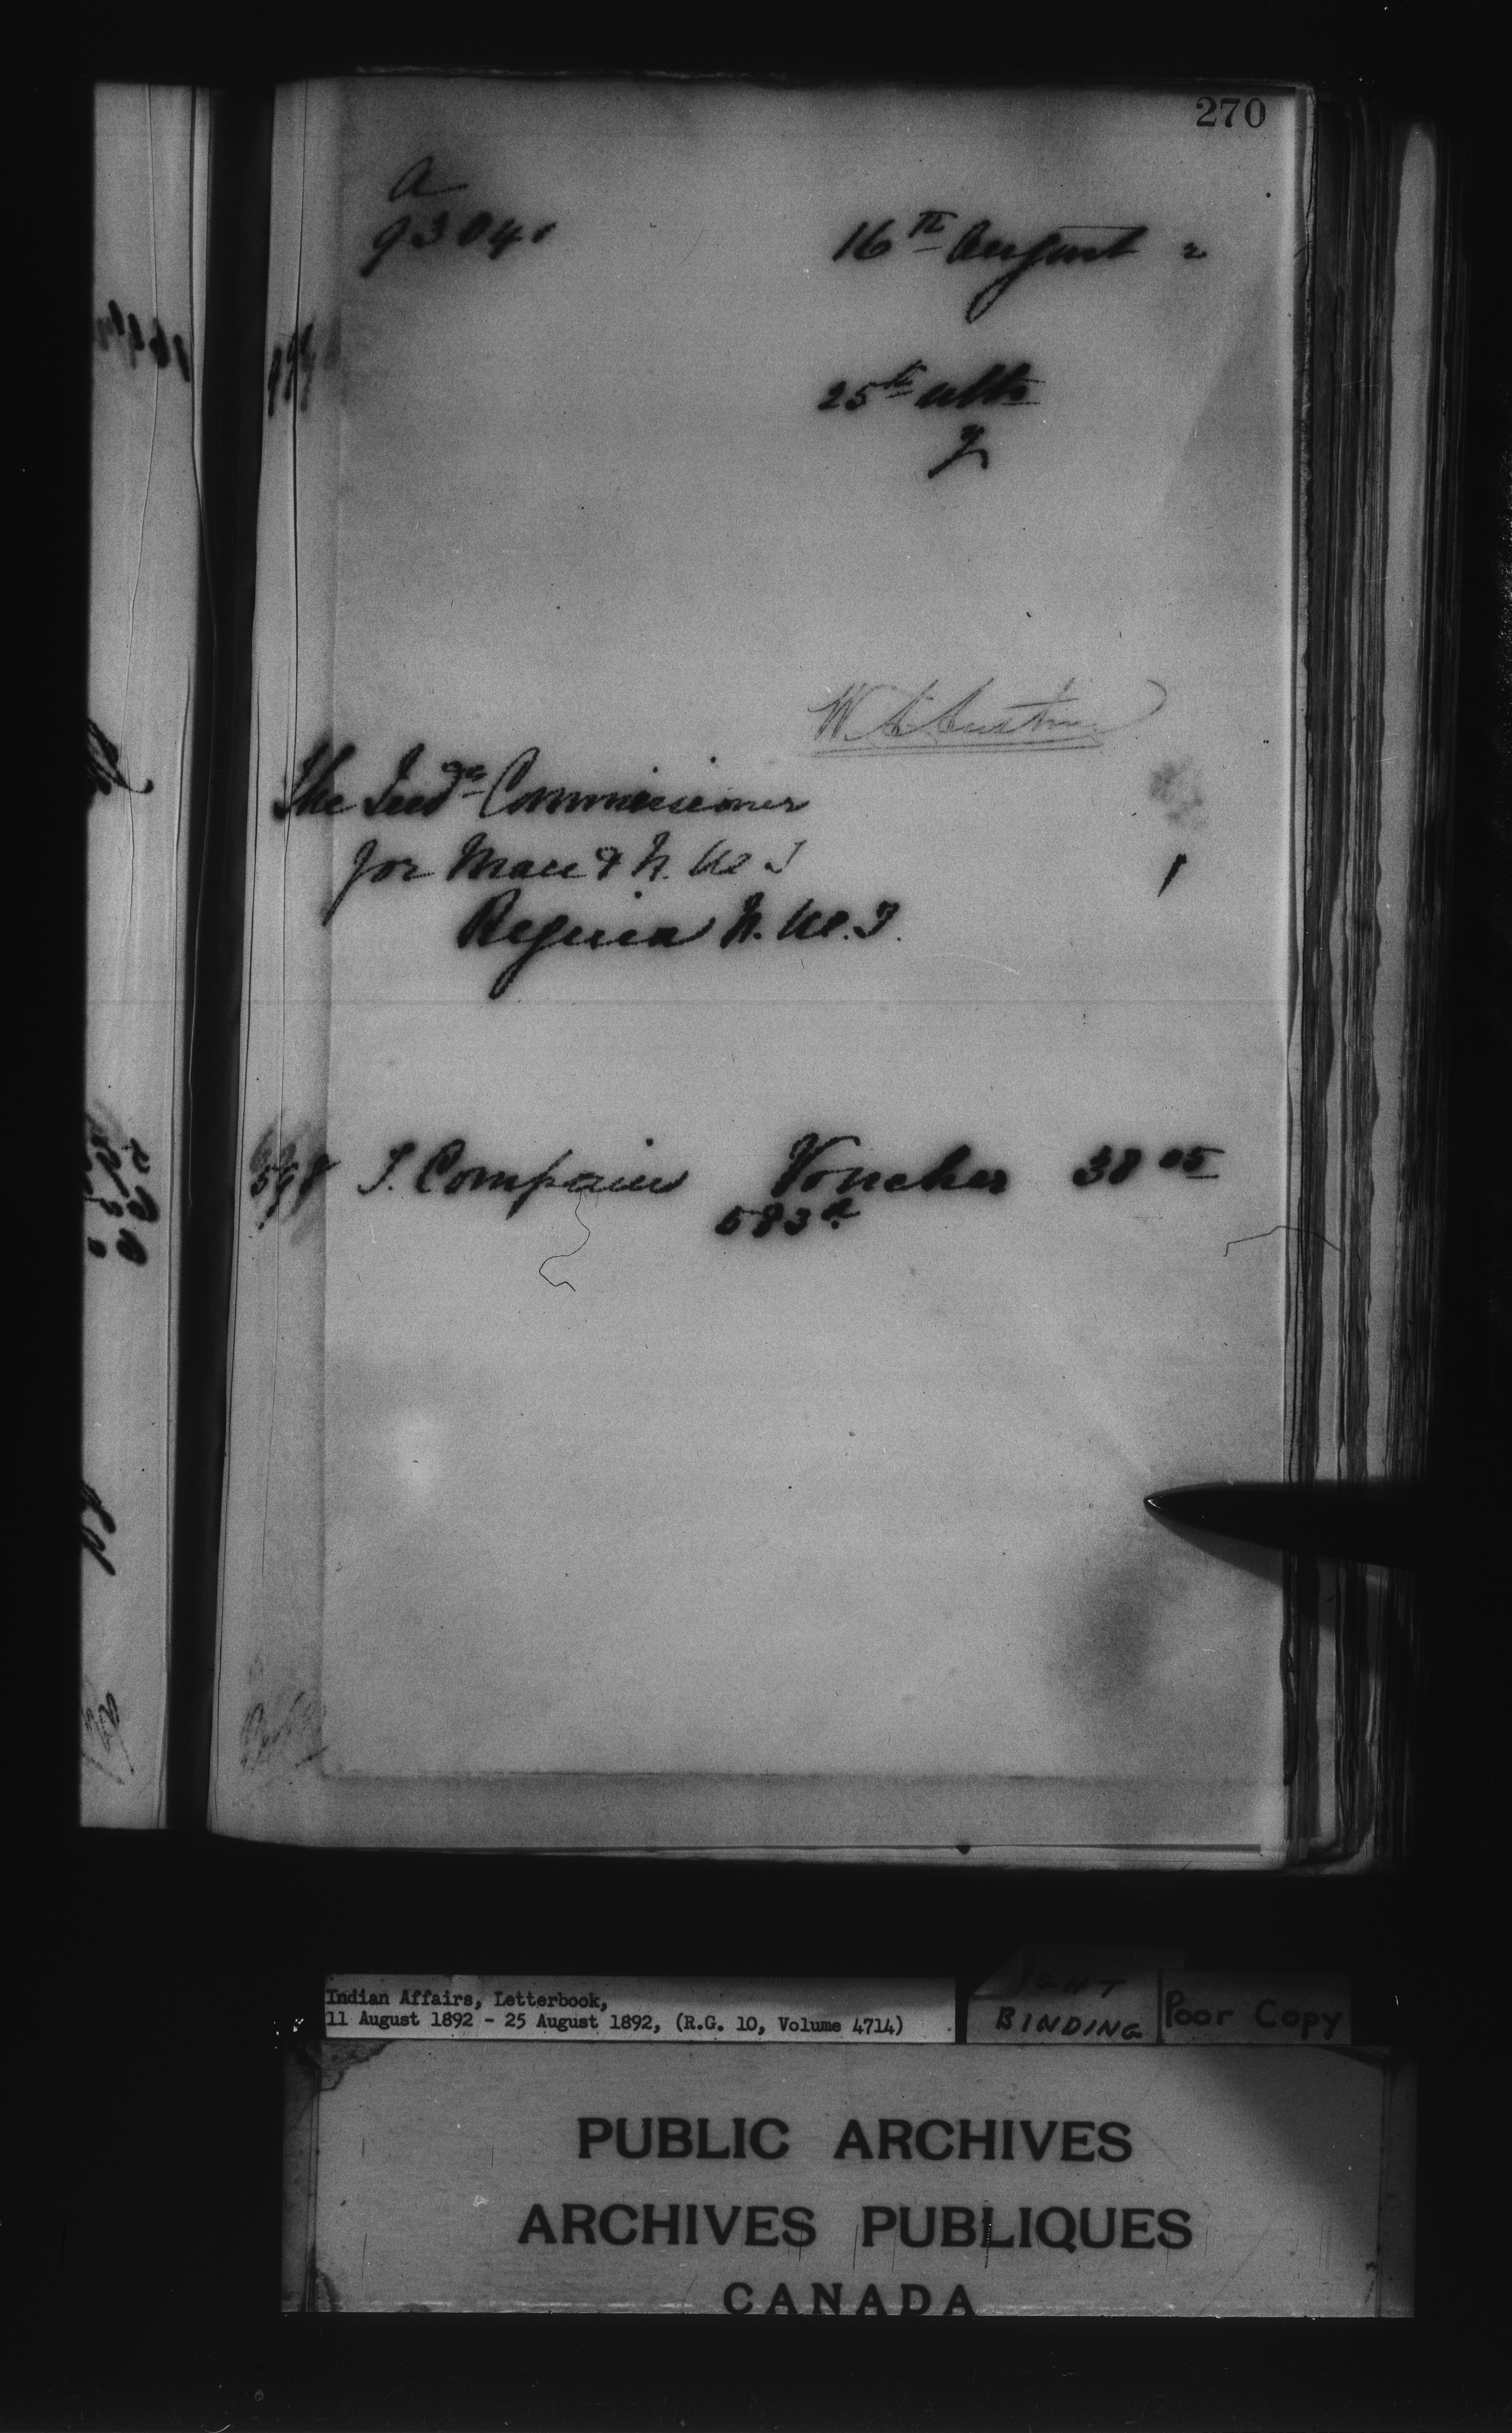 270
a
93041
16th August 2
25th ulto
W. A. Austin
The Indn Commissioner
for Man & N. W. T
Regina N. W. T.
598 T. Compain Voucher 38 05
583 a
Indian Affairs, Letterbook,
11 August 1892 - 25 August 1892, (R.G. 10, Volume 4714)
BINDING
Poor Copy
PUBLIC ARCHIVES
ARCHIVES PUBLIQUES
CANADA